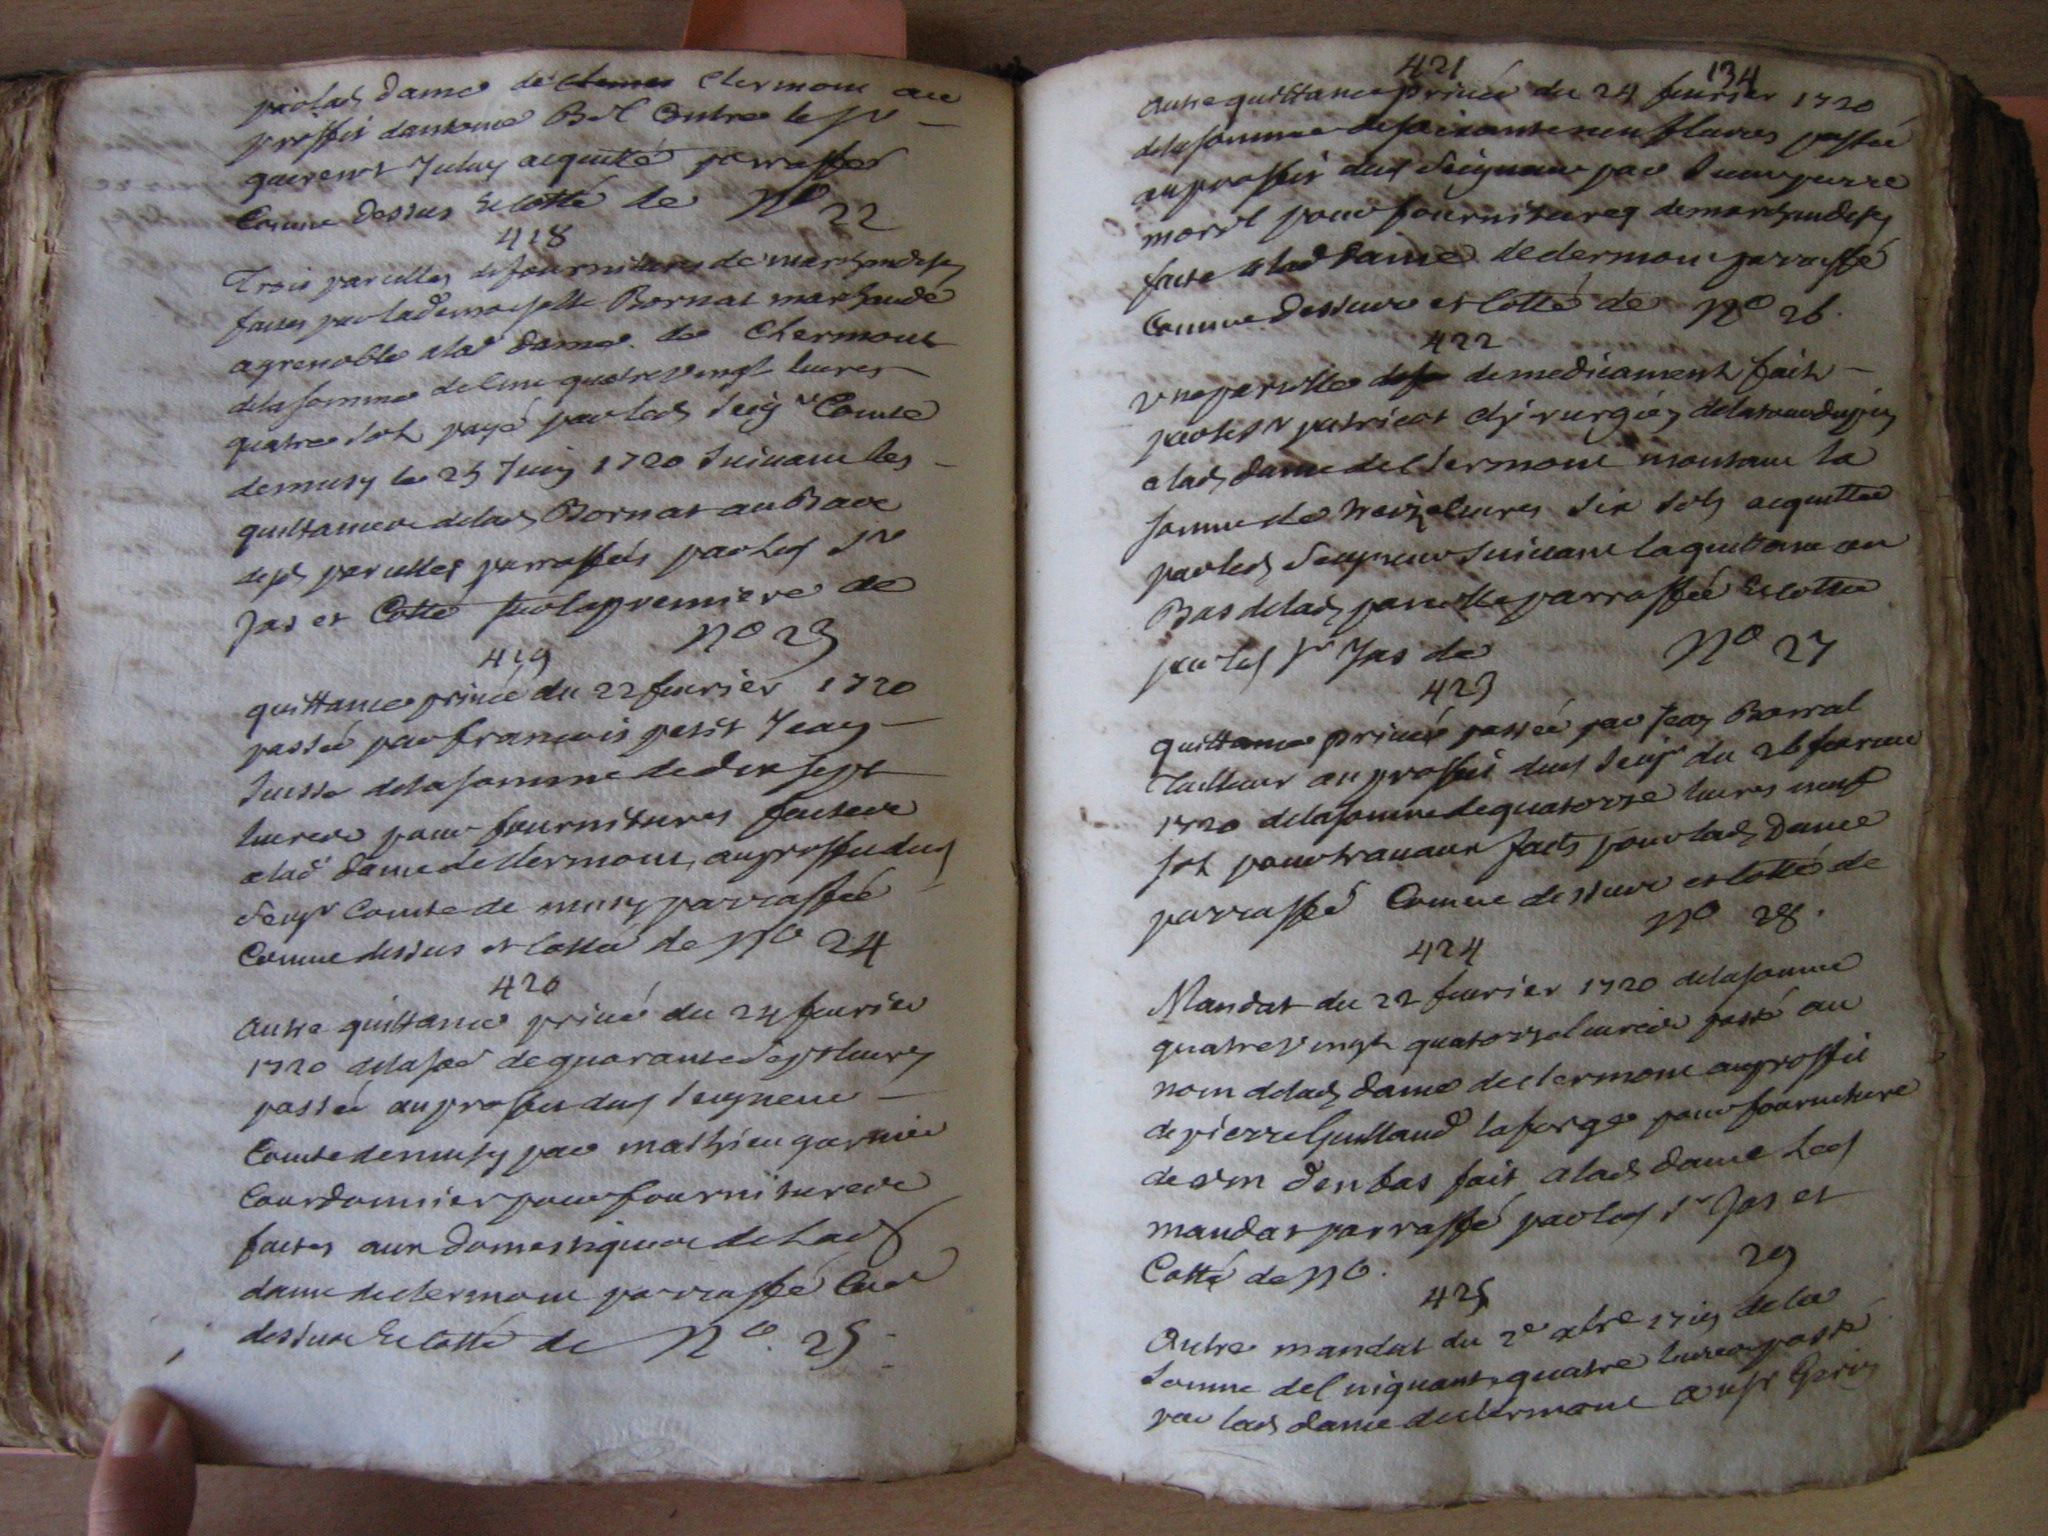 par lad dame de Clermont au
proffit dantoine Bel Contre le sr
guerenot Juluy acquitté parraffée
Comme dessus & cotté de Nº 22
418
Trois parcelles de fournitures de marchandises
faites par lademoiselle Bornat marchande
a grenoble a lad dame de Clermont
dela somme de Cent quatre vingt livres
quatre sols payé par led Seigr Comte
demusy le 25 Juin 1720 suivant les
quittances delad Bornat au Bas
desd parcelles parraffées par led sr
Jas et Cotté sur la premiere de
Nº 23
419
quittance privée du 22 fevrier 1720
passée par francois petit Jean
suisse dela somme de dix sept
livres pour fournitures faites
a lad dame de Clermont, au proffit dud
Seigr Comte de musy parraffée
Comme dessus et Cotté de Nº 24
420
Autre quittance privé du 24 fevrier
1720 dela soe de quarante sept livres
passée au proffit dud Seigneur
Comte demusy par mathieu garnier
Courdonnier pour fournitures
faites aux domestiques de Lad
dame de Clermont parraffée Coe
dessus & Cotté de Nº. 25
421
134
Autre quittance privée du 24 fevrier 1720
dela somme de soixante neuf livres passée
au proffit dud Seigneur par Sieur pierre
morel pour fournitures de marchandises
faite a lad dame de Clermont parraffé
Comme dessus et Cotté de Nº 26.
422
une parcelle de medicament fait
par le sr patricot chirurgien delatourdupin
a lad dame de Clermont montant la
somme de treize livres six sols acquittée
par led Seigneur suivant la quittance au
Bas delad parcelle parraffée & Cottée
par led sr Jas de Nº 27
423
quittance privée passée par Jean Barral
Tailleur au proffit dud Seigr du 26 fevrier
1720 dela somme de quatorze livres neuf
sol pour travaux faits pour lad dame
parraffée Comme dessus et Cotté de
Nº 28.
424
Mandat du 22 fevrier 1720 dela somme
quatre vingt quatorze livres passé au
nom delad dame de Clermont au proffit
de pierre Guilland laforge pour fourniture
de vin d'enbas fait a lad dame Led
mandat parraffé par led sr Jas et
Cotté de Nº. 29
425
Autre mandat du 2e xbre 1719 de la
somme de Cinquante quatre livres passé
par lad dame de Clermont au sr